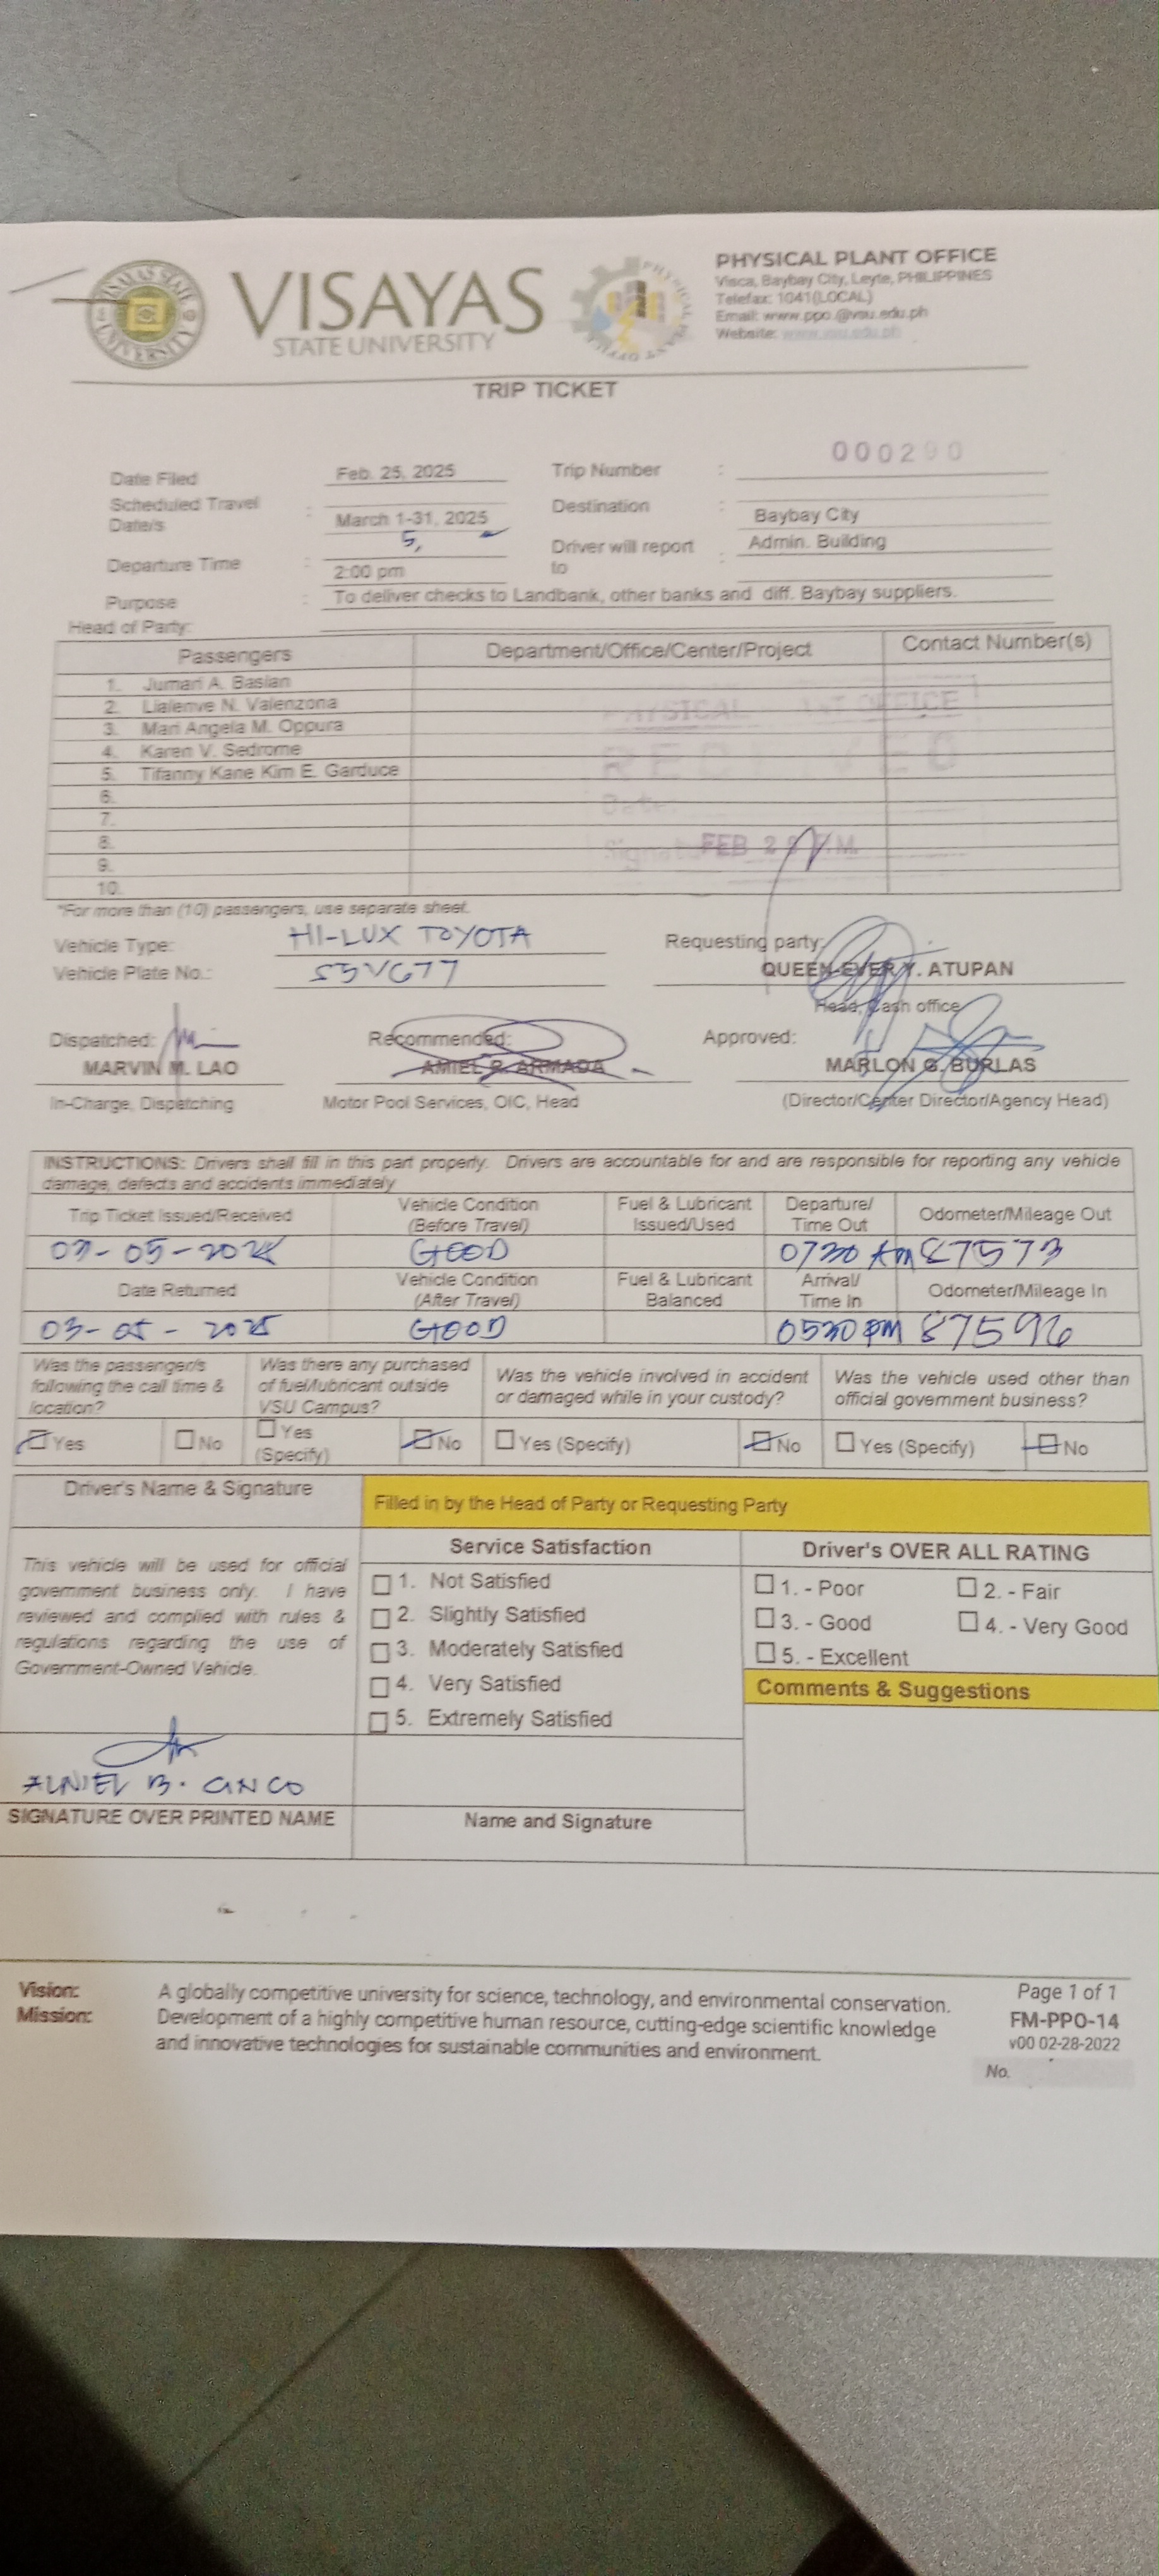 VISAYAS
STATE UNIVERSITY
VISAYAS STATE UNIVERSITY
PHYSICAL PLANT OFFICE
Visca, Baybay City, Leyte, PHILIPPINES
Telefax: 1041(LOCAL)
Email: www.ppo.@vsu.edu.ph
Website: www.vsu.edu.ph
TRIP TICKET
Date Filed Feb. 25, 2025 Trip Number : 000290
Scheduled Travel Date/s : March 1-31, 2025 Destination : Baybay City
5,
Departure Time : 2:00 pm Driver will report to : Admin. Building
Purpose : To deliver checks to Landbank, other banks and diff. Baybay suppliers.
Head of Party:
Passengers Department/Office/Center/Project Contact Number(s)
1. Jumari A. Baslan
2. Lialenve N. Valenzona
3. Mari Angela M. Oppura
4. Karen V. Sedrome
5. Tifanny Kane Kim E. Garduce
6.
7.
8.
9.
10.
PHYSICAL OFFICE
RECEIVED
Date:
FEB
*For more than (10) passengers, use separate sheet.
Vehicle Type: HI-LUX TOYOTA Requesting party:
Vehicle Plate No.: QUEEN-EVER Y. ATUPAN
Head, Cash office
Dispatched: Recommended: Approved:
MARVIN M. LAO AMIEL R. ARMADA MARLON G. BURLAS
In-Charge, Dispatching Motor Pool Services, OIC, Head (Director/Center Director/Agency Head)
INSTRUCTIONS: Drivers shall fill in this part properly. Drivers are accountable for and are responsible for reporting any vehicle
damage, defects and accidents immediately
Trip Ticket Issued/Received Vehicle Condition (Before Travel) Fuel & Lubricant Issued/Used Departure/ Time Out Odometer/Mileage Out
GOOD 0730 AM 87573
Date Returned Vehicle Condition (After Travel) Fuel & Lubricant Balanced Arrival/ Time In Odometer/Mileage In
03-05-2025 GOOD 0530 PM 87596
Was the passenger/s following the call time & location? Was there any purchased of fuel/lubricant outside VSU Campus? Was the vehicle involved in accident or damaged while in your custody? Was the vehicle used other than official government business?
Yes No Yes (Specify) No Yes (Specify) No Yes (Specify) No
Driver's Name & Signature Filled in by the Head of Party or Requesting Party
Service Satisfaction Driver's OVER ALL RATING
This vehicle will be used for official
government business only. I have
reviewed and complied with rules &
regulations regarding the use of
Government-Owned Vehicle.
1. Not Satisfied
2. Slightly Satisfied
3. Moderately Satisfied
4. Very Satisfied
5. Extremely Satisfied
1. - Poor 2. - Fair
3. - Good 4. - Very Good
5. - Excellent
Comments & Suggestions
ALNIEL B. CINCO
SIGNATURE OVER PRINTED NAME Name and Signature
Vision: A globally competitive university for science, technology, and environmental conservation.
Mission: Development of a highly competitive human resource, cutting-edge scientific knowledge
and innovative technologies for sustainable communities and environment.
Page 1 of 1
FM-PPO-14
v00 02-28-2022
No.